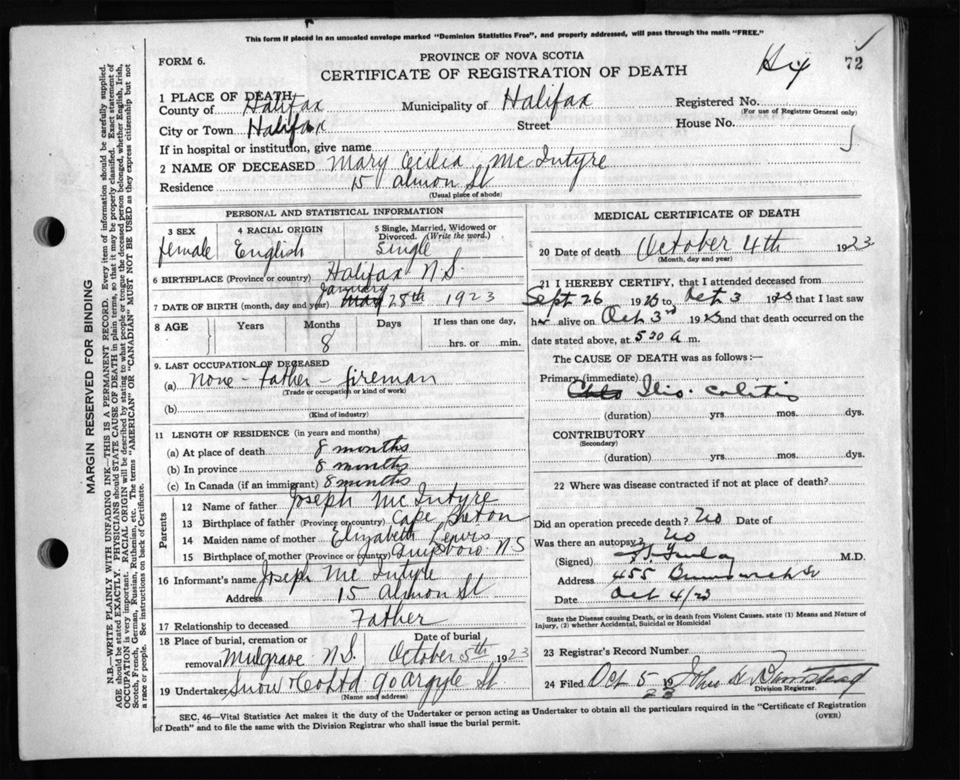 This form if placed in an unsealed envelope marked "Dominion Statistics Free", and properly addressed, will pass through the mails "FREE."
FORM 6.
PROVINCE OF NOVA SCOTIA
CERTIFICATE OF REGISTRATION OF DEATH
72
1 PLACE OF DEATH
County of Halifax Municipality of Halifax Registered No.
(For use of Registrar General only)
City or Town Halifax Street House No.
If in hospital or institution, give name
2 NAME OF DECEASED Mary Cecilia McIntyre
Residence 15 Almon St
(Usual place of abode)
PERSONAL AND STATISTICAL INFORMATION
3 SEX female
4 RACIAL ORIGIN English
5 Single, Married, Widowed or Divorced. (Write the word.) Single
6 BIRTHPLACE (Province or country) Halifax N.S.
7 DATE OF BIRTH (month, day and year) January 28th 1923
8 AGE Years Months Days If less than one day,
8 hrs. or min.
9. LAST OCCUPATION OF DECEASED
(a) None - Father - fireman
(Trade or occupation or kind of work)
(b)
(Kind of industry)
11 LENGTH OF RESIDENCE (in years and months)
(a) At place of death 8 months
(b) In province 8 months
(c) In Canada (if an immigrant) 8 months
Parents
12 Name of father Joseph McIntyre
13 Birthplace of father (Province or country) Cape Breton
14 Maiden name of mother Elizabeth Lewis
15 Birthplace of mother (Province or country) Guysboro N S
16 Informant's name Joseph McIntyre
Address 15 Almon St
17 Relationship to deceased Father
18 Place of burial, cremation or removal Mulgrave N.S. Date of burial October 5th 1923
19 Undertaker Snow & Co Ltd 90 Argyle St.
(Name and address)
MEDICAL CERTIFICATE OF DEATH
20 Date of death October 4th 1923
(Month, day and year)
21 I HEREBY CERTIFY, that I attended deceased from
Sept 26 1923 to Oct 3 1923 that I last saw
her alive on Oct 3rd 1923 and that death occurred on the
date stated above, at 5 30 a m.
The CAUSE OF DEATH was as follows :—
Primary (immediate) Ilio-colitis
(duration) yrs. mos. dys.
CONTRIBUTORY
(Secondary)
(duration) yrs. mos. dys.
22 Where was disease contracted if not at place of death?
Did an operation precede death? No Date of
Was there an autopsy? No
(Signed) M.D.
Address 455 Brunswick St
Date Oct 4/23
State the Disease causing Death, or in death from Violent Causes, state (1) Means and Nature of Injury, (2) whether Accidental, Suicidal or Homicidal
23 Registrar's Record Number
24 Filed Oct 5 1923
Division Registrar.
SEC. 46—Vital Statistics Act makes it the duty of the Undertaker or person acting as Undertaker to obtain all the particulars required in the "Certificate of Registration
of Death" and to file the same with the Division Registrar who shall issue the burial permit.
(OVER)
MARGIN RESERVED FOR BINDING
N.B.—WRITE PLAINLY WITH UNFADING INK—THIS IS A PERMANENT RECORD. Every item of information should be carefully supplied.
AGE should be stated EXACTLY. PHYSICIANS should STATE CAUSE OF DEATH in plain terms, so that it may be properly classified. Exact statement of
OCCUPATION is very important. RACIAL ORIGIN will be described by stating to what people or tongue the deceased person belonged, whether English, Irish,
Scotch, French, German, Russian, Ruthenian, etc. The terms "AMERICAN" OR "CANADIAN" MUST NOT BE USED as they express citizenship but not
a race or people. See instructions on back of Certificate.